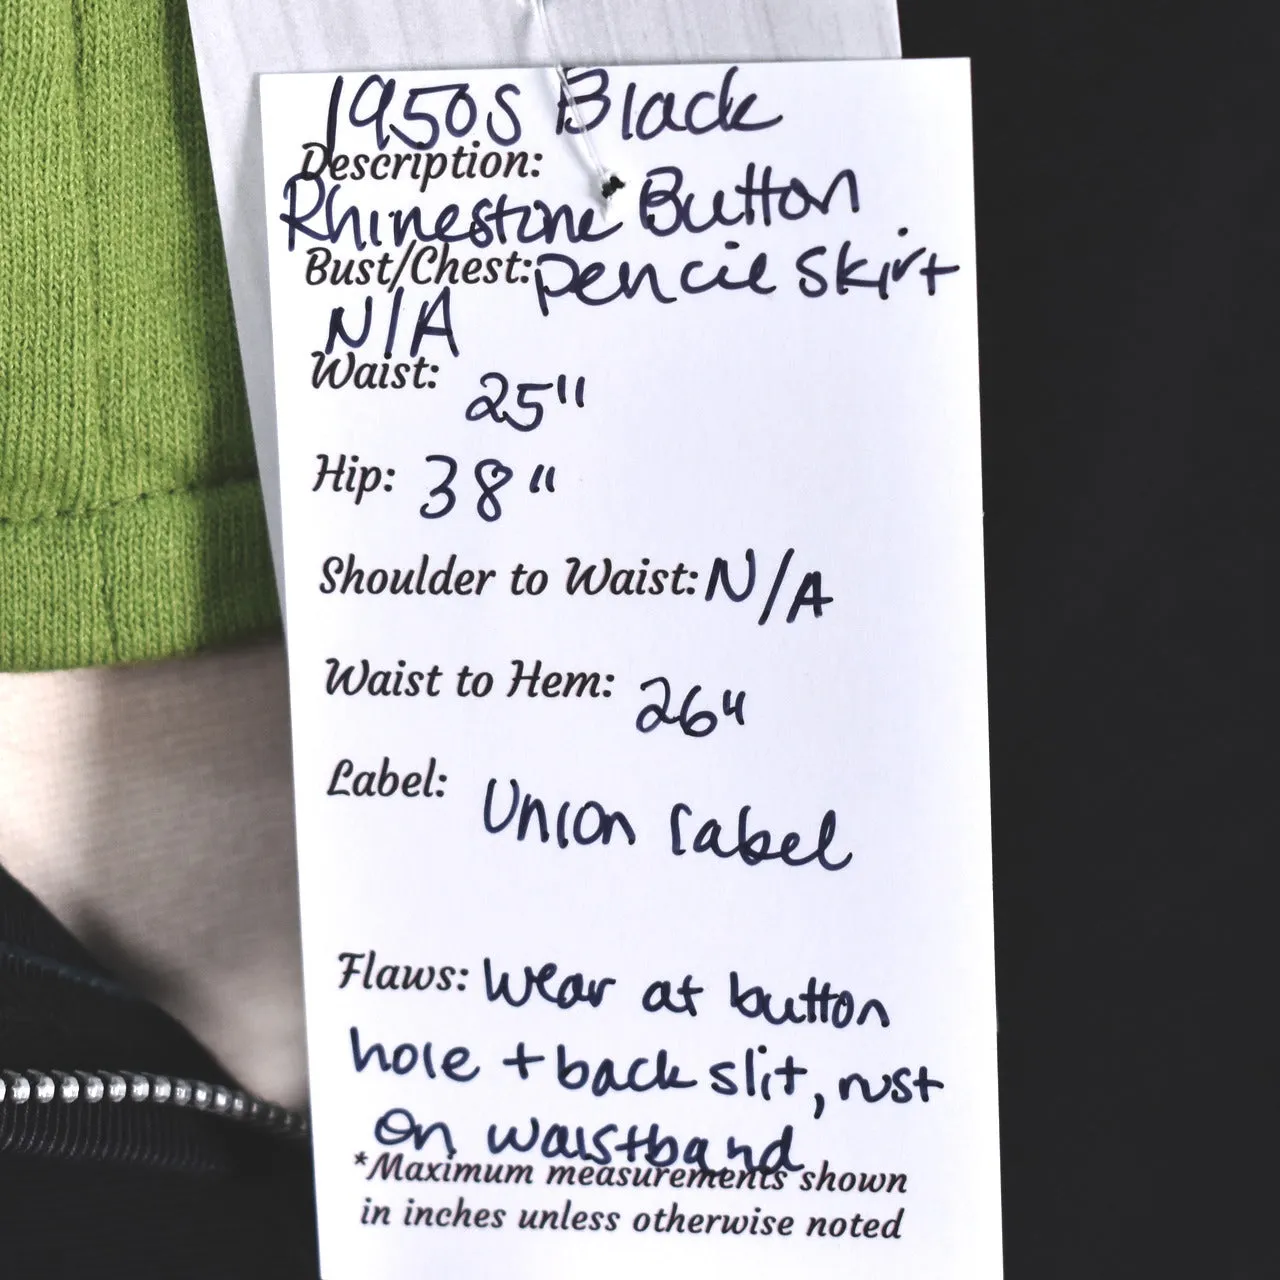 1950s Black
Description:
Rhinestone Button
Bust/Chest: pencil skirt
N/A
Waist: 25"
Hip: 38"
Shoulder to Waist: N/A
Waist to Hem: 26"
Label: Union Label
Flaws: Wear at button
hole + back slit, rust
on waistband
*Maximum measurements shown
in inches unless otherwise noted